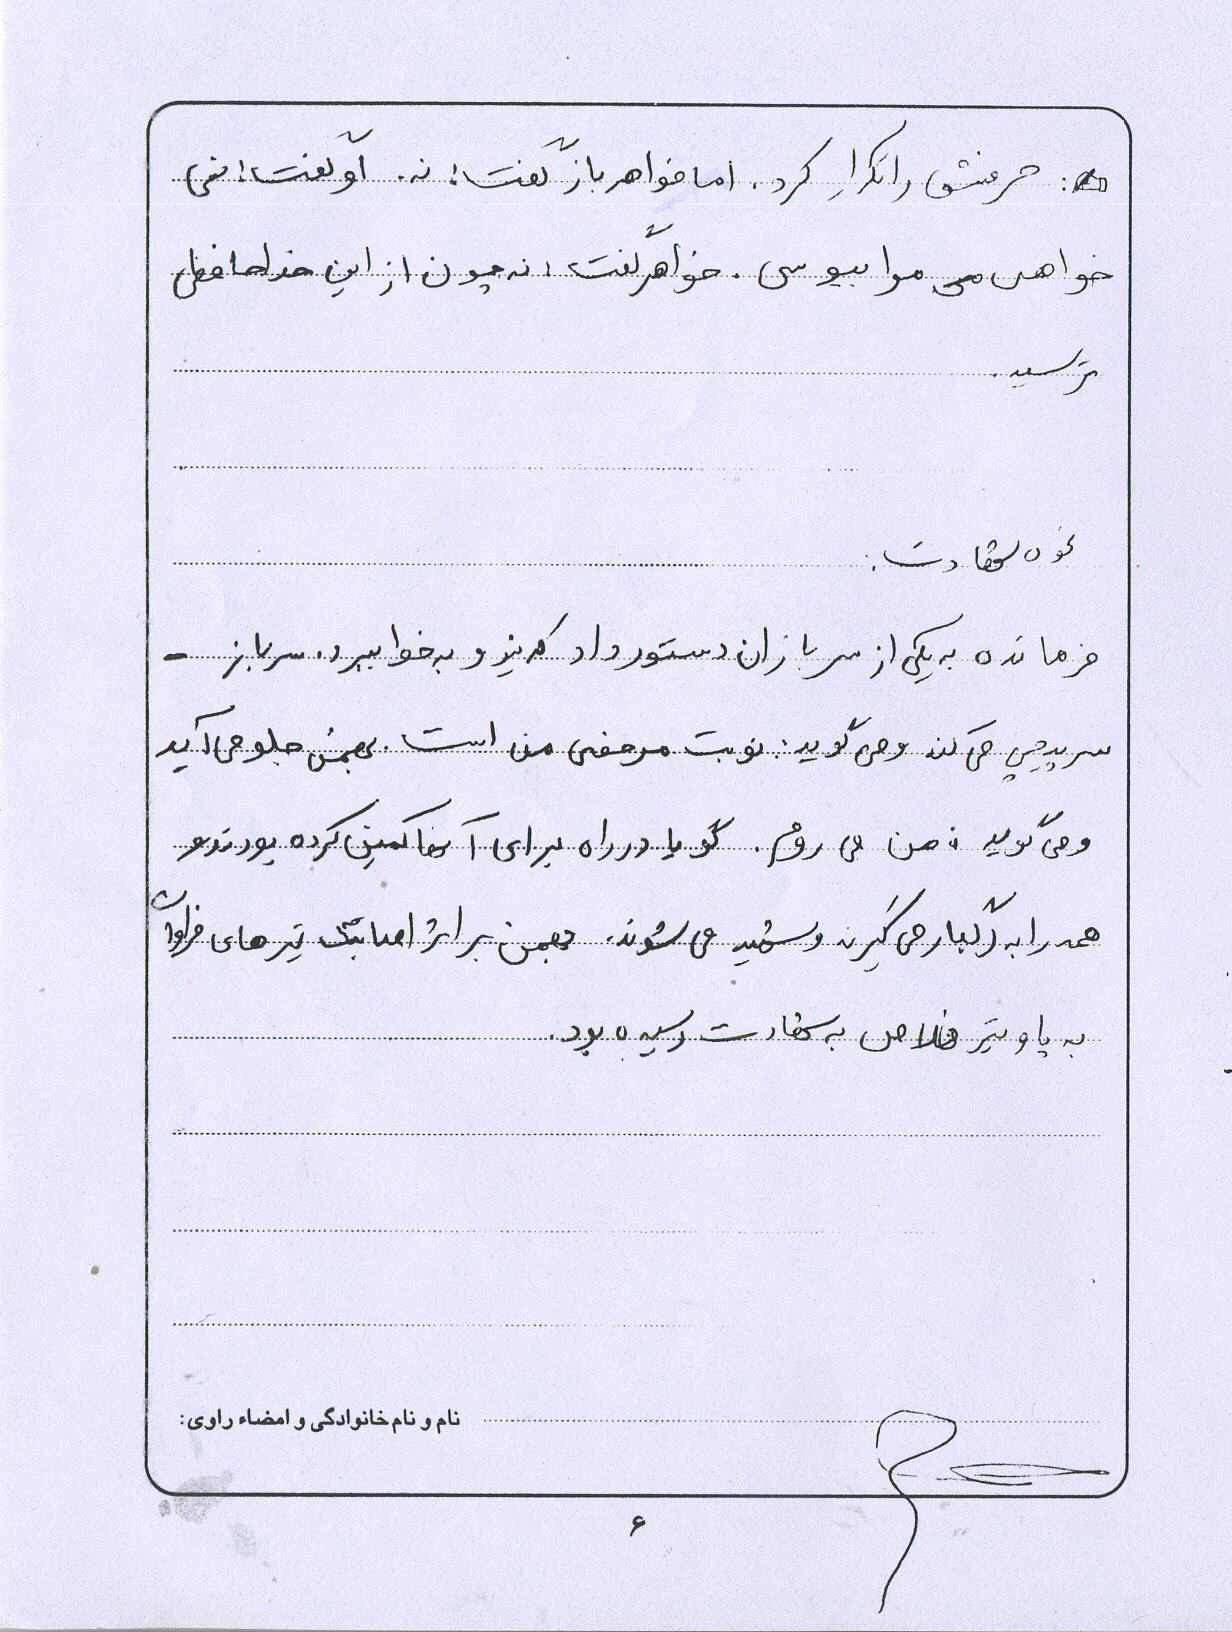 : حرفش را تکرار کرد. اما خواهر باز گفت: نه. او گفت: نمی
خواهی می مرا ببوسی. خواهر گفت: نه چون از این خداحافظی
ترسید.
نحوه شهادت:
فرمانده به یکی از سربازان دستور داد که نیرو به خوا ببرد. سرباز -
سرپیچی می کند و می گوید: نوبت مرخصی من است. بهمن جلو می آید
و می گوید: من می روم. گویا در راه برای آنها کمین کرده بودند و
همه را به رگبار می گیرند و شهید می شوند. بهمن بر اثر اصابت تیرهای فراوان
به پا و تیر خلاص به شهادت رسیده بود.
نام و نام خانوادگی و امضاء راوی:
۶